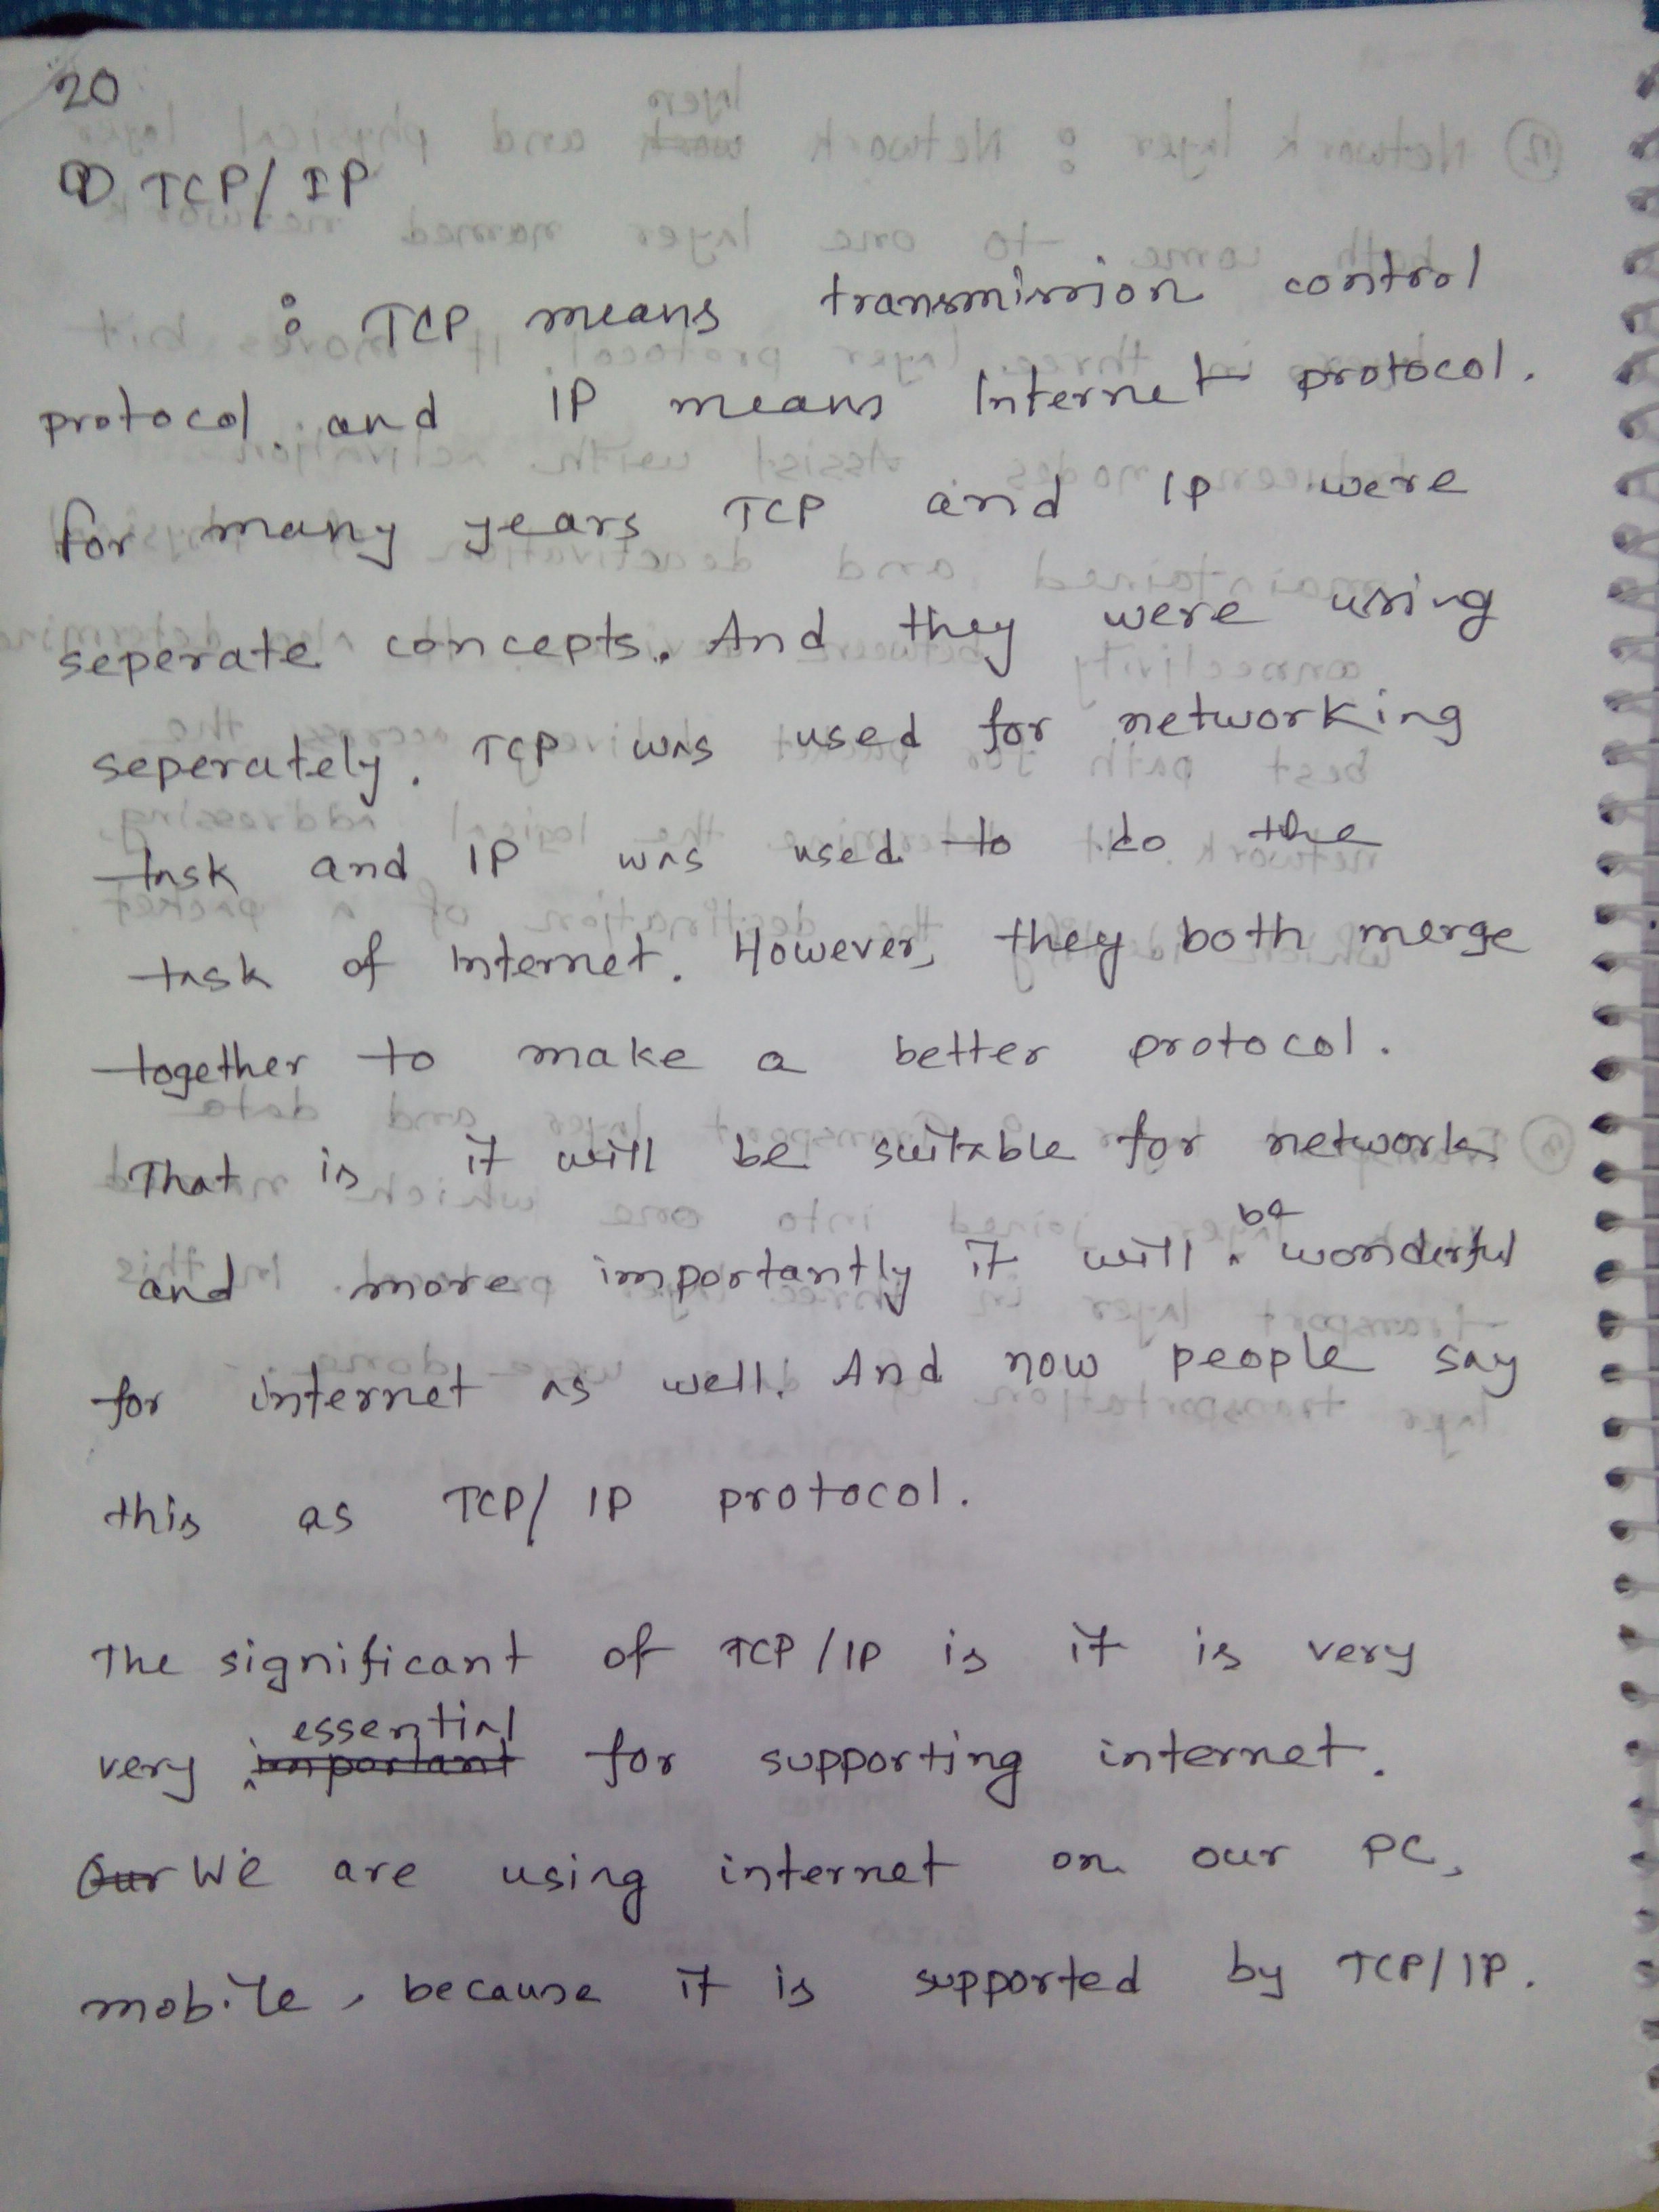 20
① TCP/IP
: TCP means transmission control
protocol and IP means Internet protocol.
for many years TCP and IP were
seperate concepts. And they were using
seperately. TCP was used for networking
task and IP was used to do the
task of internet. However, they both merge
together to make a better protocol.
That is it will be suitable for network
and more importantly it will be wonderful
for internet as well. And now people say
this as TCP/IP protocol.
The significant of TCP/IP is it is very
very important essential for supporting internet.
Our We are using internet on our PC,
mobile, because it is supported by TCP/IP.